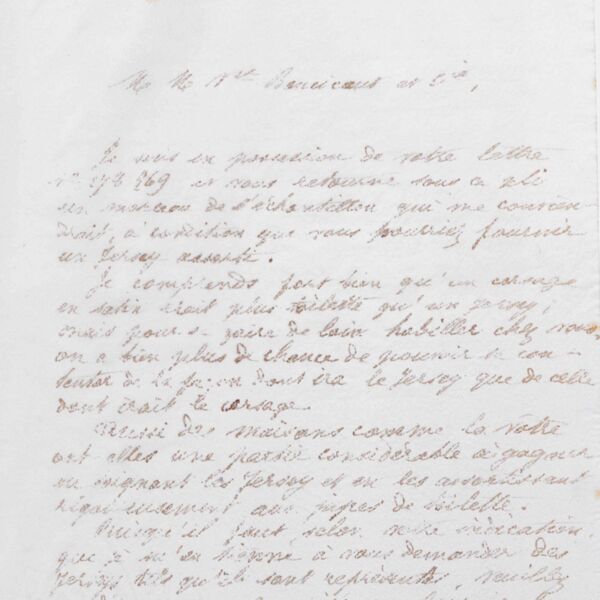 M M Vve Boucicaut et Cie,
Je suis en possession de votre lettre
et vous retourne sous ce pli
un morceau de l'échantillon qui me convien-
drait, à condition que vous pourriez fournir
un Jersey assorti.
Je comprends fort bien qu'un corsage
en satin serait plus toilette qu'un Jersey;
mais pour se faire de loin habiller chez vous
on a bien plus de chance de pouvoir se con-
tenter de la façon dont ira le Jersey que de celle
dont irait le corsage.
Aussi des maisons comme la vôtre
ont elles une partie considérable à gagner
en soignant les Jersey et en les assortissant
rigoureusement aux jupes de toilette.
Puisqu'il faut, selon votre indication,
que je m'en tienne à vous demander des
Jerseys tels qu'ils sont représentés, veuillez